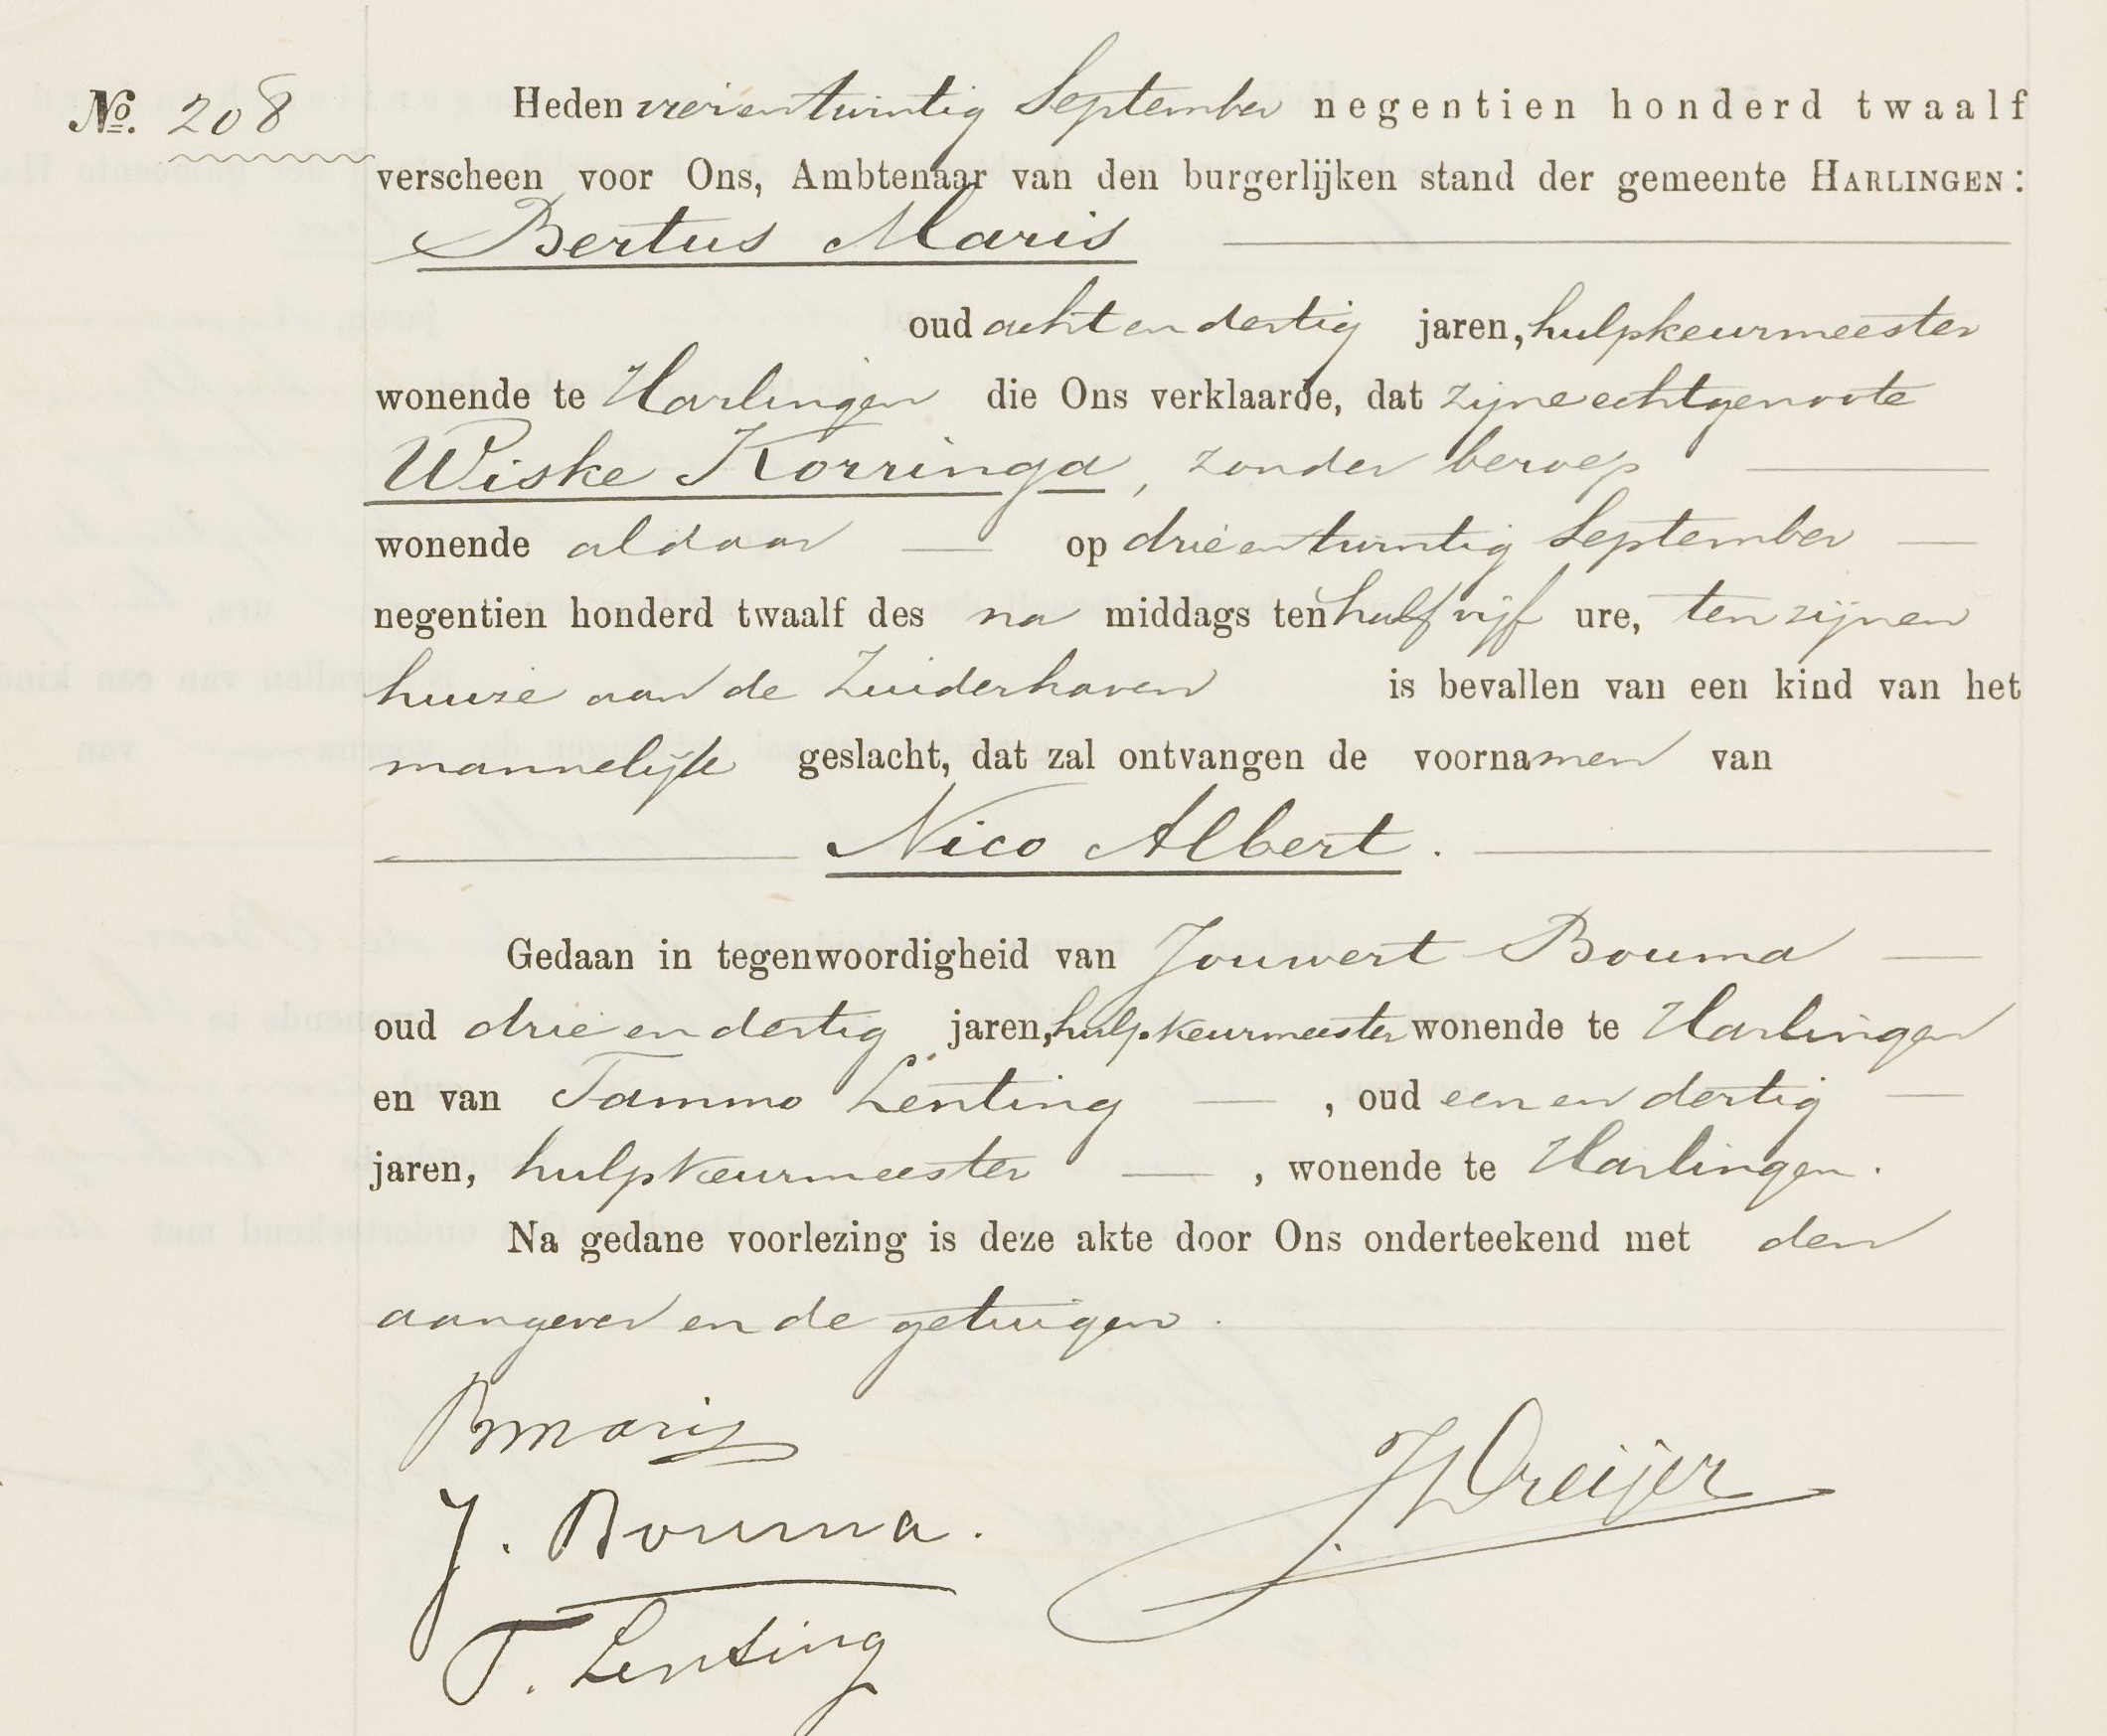 No. 208
Heden vierentwintig September negentien honderd twaalf
verscheen voor Ons, Ambtenaar van den burgerlijken stand der gemeente HARLINGEN:
Bertus Maris
oud achtendertig jaren, hulpkeurmeester
wonende te Harlingen die Ons verklaarde, dat zijne echtgenoote
Wiske Korringa, zonder beroep
wonende aldaar op drieentwintig September
negentien honderd twaalf des na middags ten half vijf ure, ten zijnen
huize aan de Zuiderhaven is bevallen van een kind van het
mannelijk geslacht, dat zal ontvangen de voornamen van
Nico Albert.
Gedaan in tegenwoordigheid van Jouwert Bouma
oud drieendertig jaren, hulpkeurmeester wonende te Harlingen
en van Tammo Lenting, oud eenendertig
jaren, hulpkeurmeester, wonende te Harlingen.
Na gedane voorlezing is deze akte door Ons onderteekend met den
aangever en de getuigen.
B Maris
J. Bouma.
T. Lenting
Dreijer